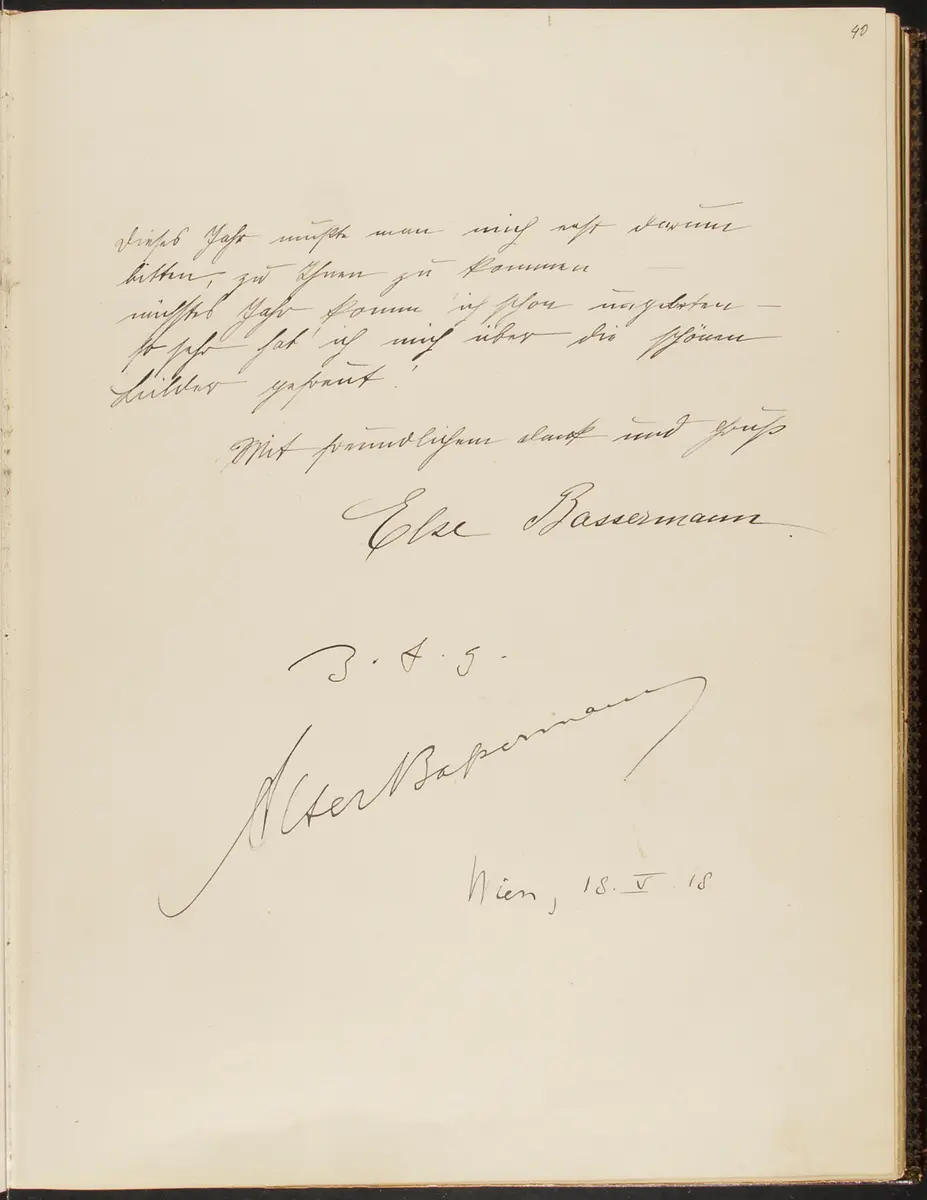 40
Dieses Jahr mußte man mich erst darum
bitten, zu Ihnen zu kommen
nächstes Jahr komm ich schon ungebeten –
so sehr hab ich mich über die schönen
Bilder gefreut!
Mit freundlichem Dank und Gruß
Else Bassermann.
Bassermann
Wien, 18. V 18